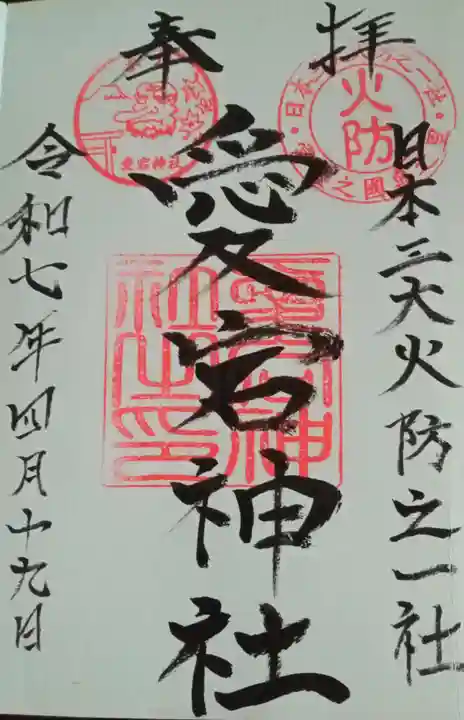 奉拝
日本三大火防之一社
愛宕神社
令和七年四月十九日
火防
愛宕神社
愛宕神社之印